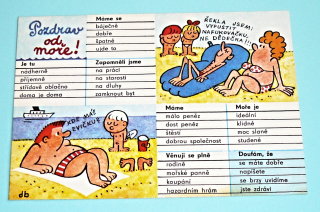 Pozdrav
od
moře!
Máme se
báječně
dobře
špatně
ujde to
Je tu
nádherně
příjemně
střídavě oblačno
doma je doma
Zapomněli jsme
na práci
na starosti
na dluhy
zamknout byt
ŘEKLA JSEM:
VYPUSTIT
NAFUKOVAČKU,
NE DĚDEČKA!!
KDE MÁŠ
db
Máme
málo peněz
dost peněz
štěstí
dobrou společnost
Moře je
ideální
klidné
moc slané
studené
Věnuji se plně
rodině
mořské panně
koupání
hazardním hrám
Doufám, že
se máte dobře
napíšete
se brzy uvidíme
jste zdrávi